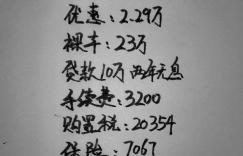 优惠:2.29万
裸车:23万
贷款10万 两年无息
手续费:3200
购置税:20354
保险:7067